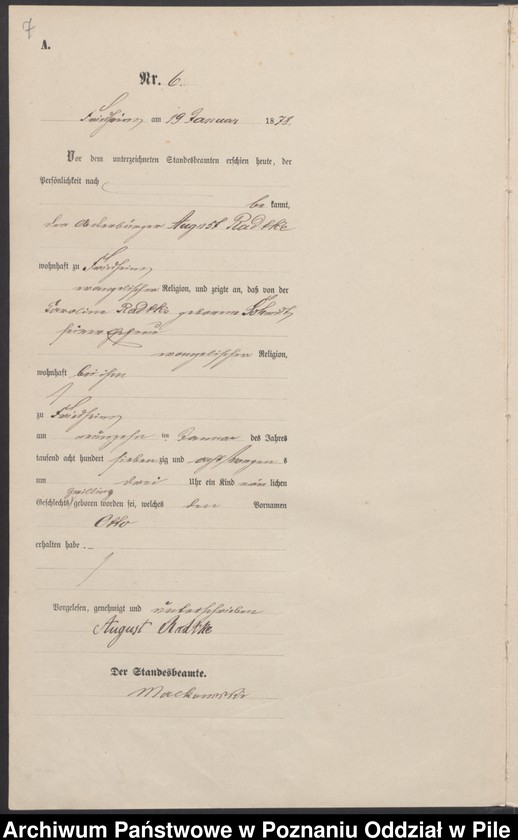 7
A.
Nr. 6.
Friedheim am 19 Januar 1878.
Vor dem unterzeichneten Standesbeamten erschien heute, der
Persönlichkeit nach
be kannt,
der Ackerbürger August Radtke
wohnhaft zu Friedheim
evangelischer Religion, und zeigte an, daß von der
Caroline Radtke geborene Schmidt
seiner Ehefrau
evangelischer Religion,
wohnhaft bei ihm
zu Friedheim
am neunzehn ten Januar des Jahres
tausend acht hundert sieben zig und acht Morgens
um drei Uhr ein Kind männ lichen
Zwilling
Geschlechts geboren worden sei, welches den Vornamen
Otto
erhalten habe.
Vorgelesen, genehmigt und unterschrieben
August Radtke
Der Standesbeamte.
Archiwum Państwowe w Poznaniu Oddział w Pile